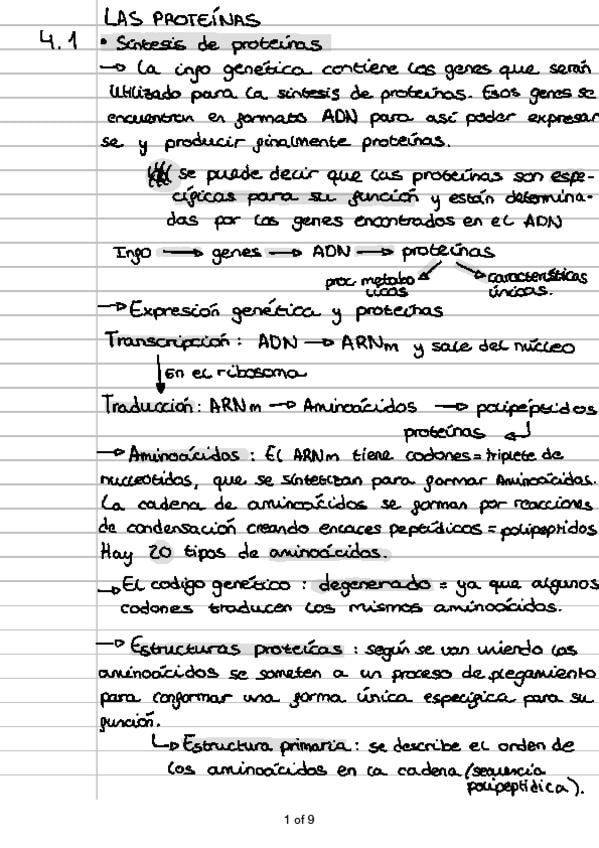 LAS PROTEÍNAS
4.1 • Síntesis de proteínas
→ La info genética contiene los genes que serán
utilizado para la síntesis de proteínas. Esos genes se
encuentran en formato ADN para así poder expresar
se y producir finalmente proteínas.
se puede decir que las proteínas son espe-
cíficas para su función y están determina-
das por los genes encontrados en el ADN
Info → genes → ADN → proteínas
proc. metabo
licos
características
únicas.
→ Expresión genética y proteínas
Transcripción: ADN → ARNm y sale del núcleo
En el ribosoma
Traducción: ARNm → Aminoácidos → polipéptidos
proteínas
→ Aminoácidos: El ARNm tiene codones = triplete de
nucleótidos, que se sintetizan para formar Aminoácidos.
La cadena de aminoácidos se forman por reacciones
de condensación creando enlaces peptídicos = polipeptidos
Hay 20 tipos de aminoácidos.
→ El codigo genético: degenerado = ya que algunos
codones traducen los mismos aminoácidos.
→ Estructuras proteícas: según se van uniendo los
aminoácidos se someten a un proceso de plegamiento
para conformar una forma única específica para su
función.
↳ Estructura primaria: se describe el orden de
los aminoácidos en la cadena (secuencia
polipeptídica).
1 of 9